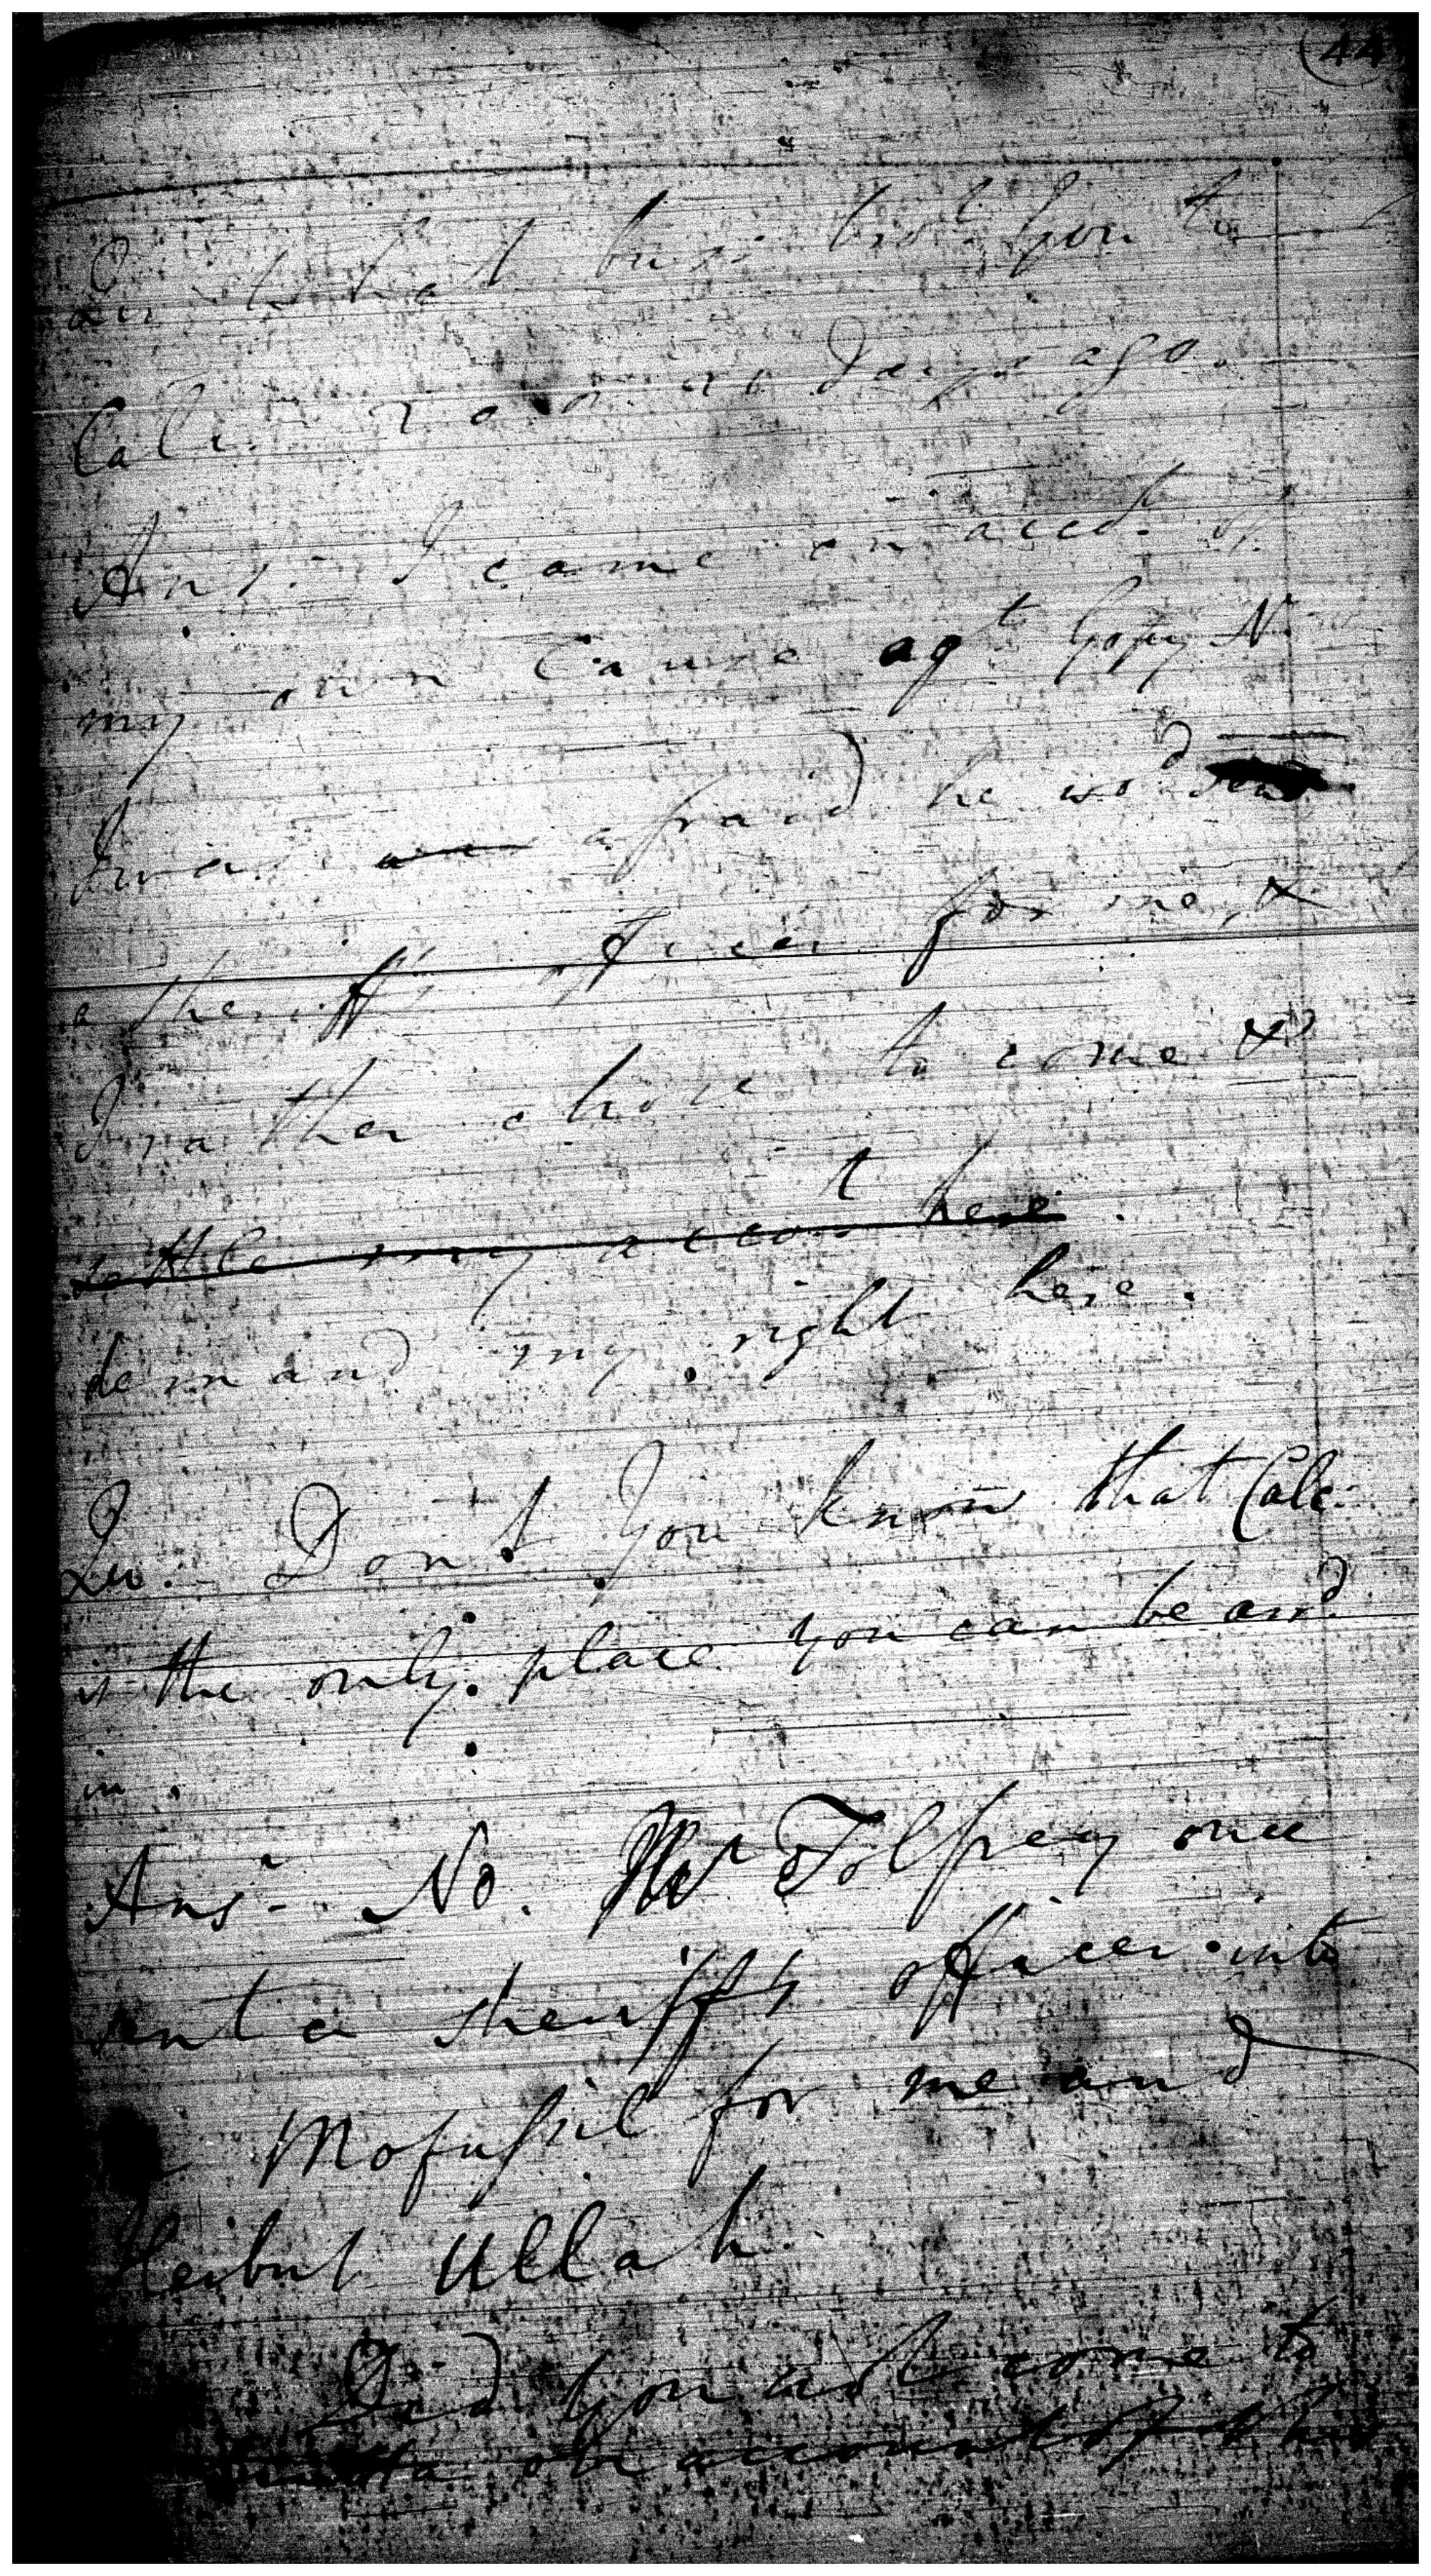 44
Qu. What busi. bro.t you to
Calc. days ago.
Ans. I came on acct. of
my own Cause agt Gopy N
I was afraid he wod send
a sheriff's officer for me, &
I rather chose to come &
settle my accot here.
demand my right here.
Qu. Don't you know that Calc.
is the only place you can be arrd
in.
Ansr. No. Mr Tolfrey once
sent a sheriff's officer into
Mofussil for me and
Heibut Ullah
Did you not come to
Calcutta on account of that